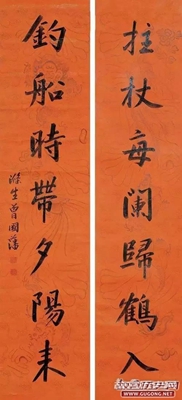 拄杖每闌歸鶴入
釣船時帶夕陽来
滌生曾國藩
WWW.GUGONG.NET